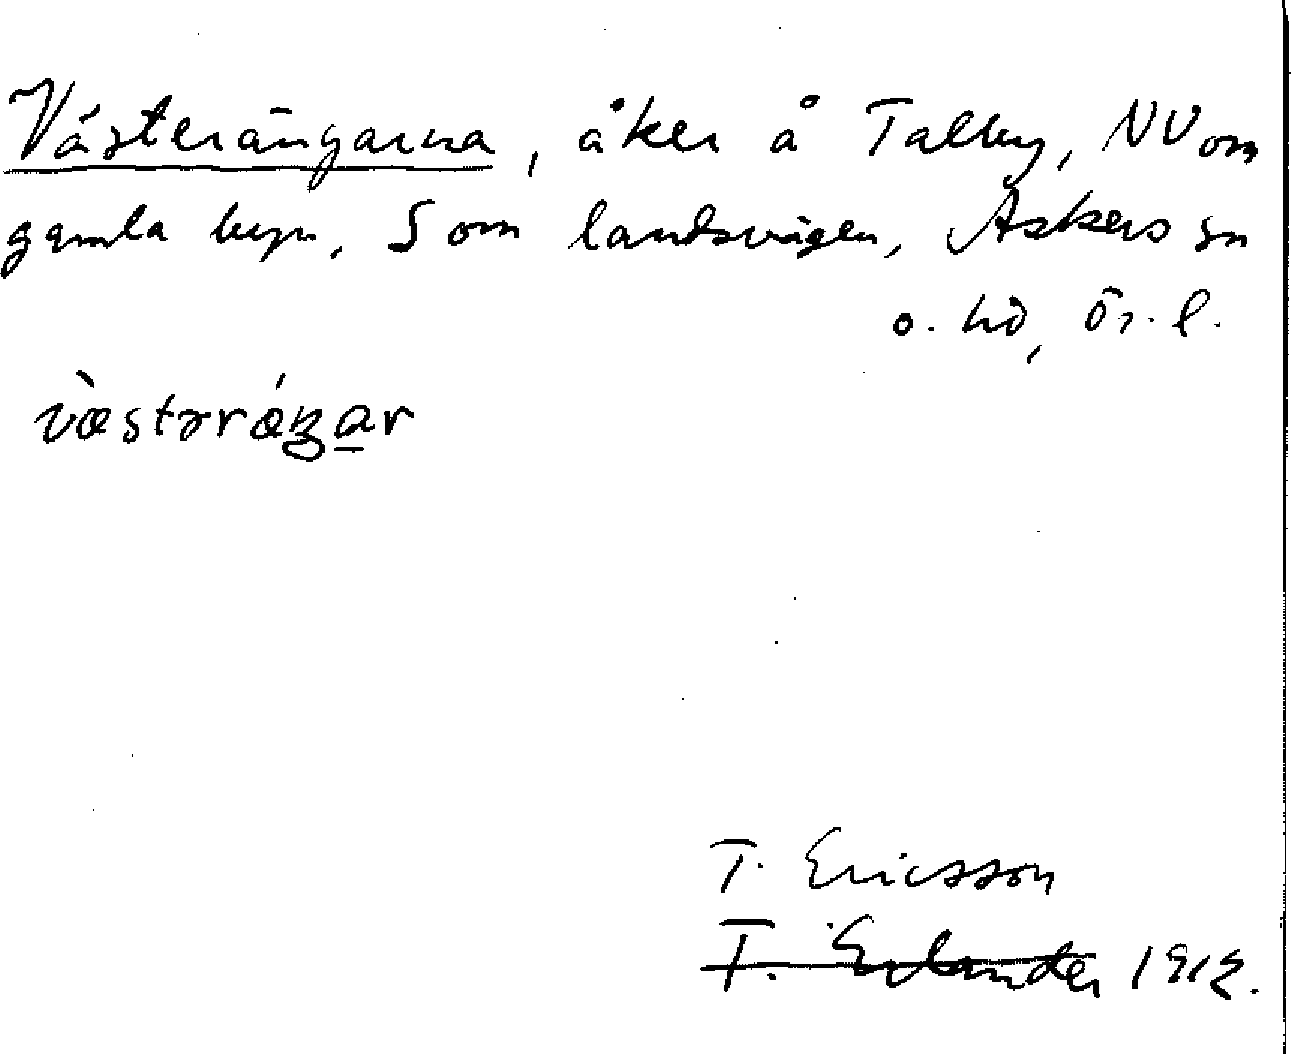 Västerängarna, åker å Talby, NV om
gamla byn, S om landsvägen, Askers sn
o. hd, Ör. l.
væ̀stərǽŋar
T. Ericsson
T. Erlander 1912.